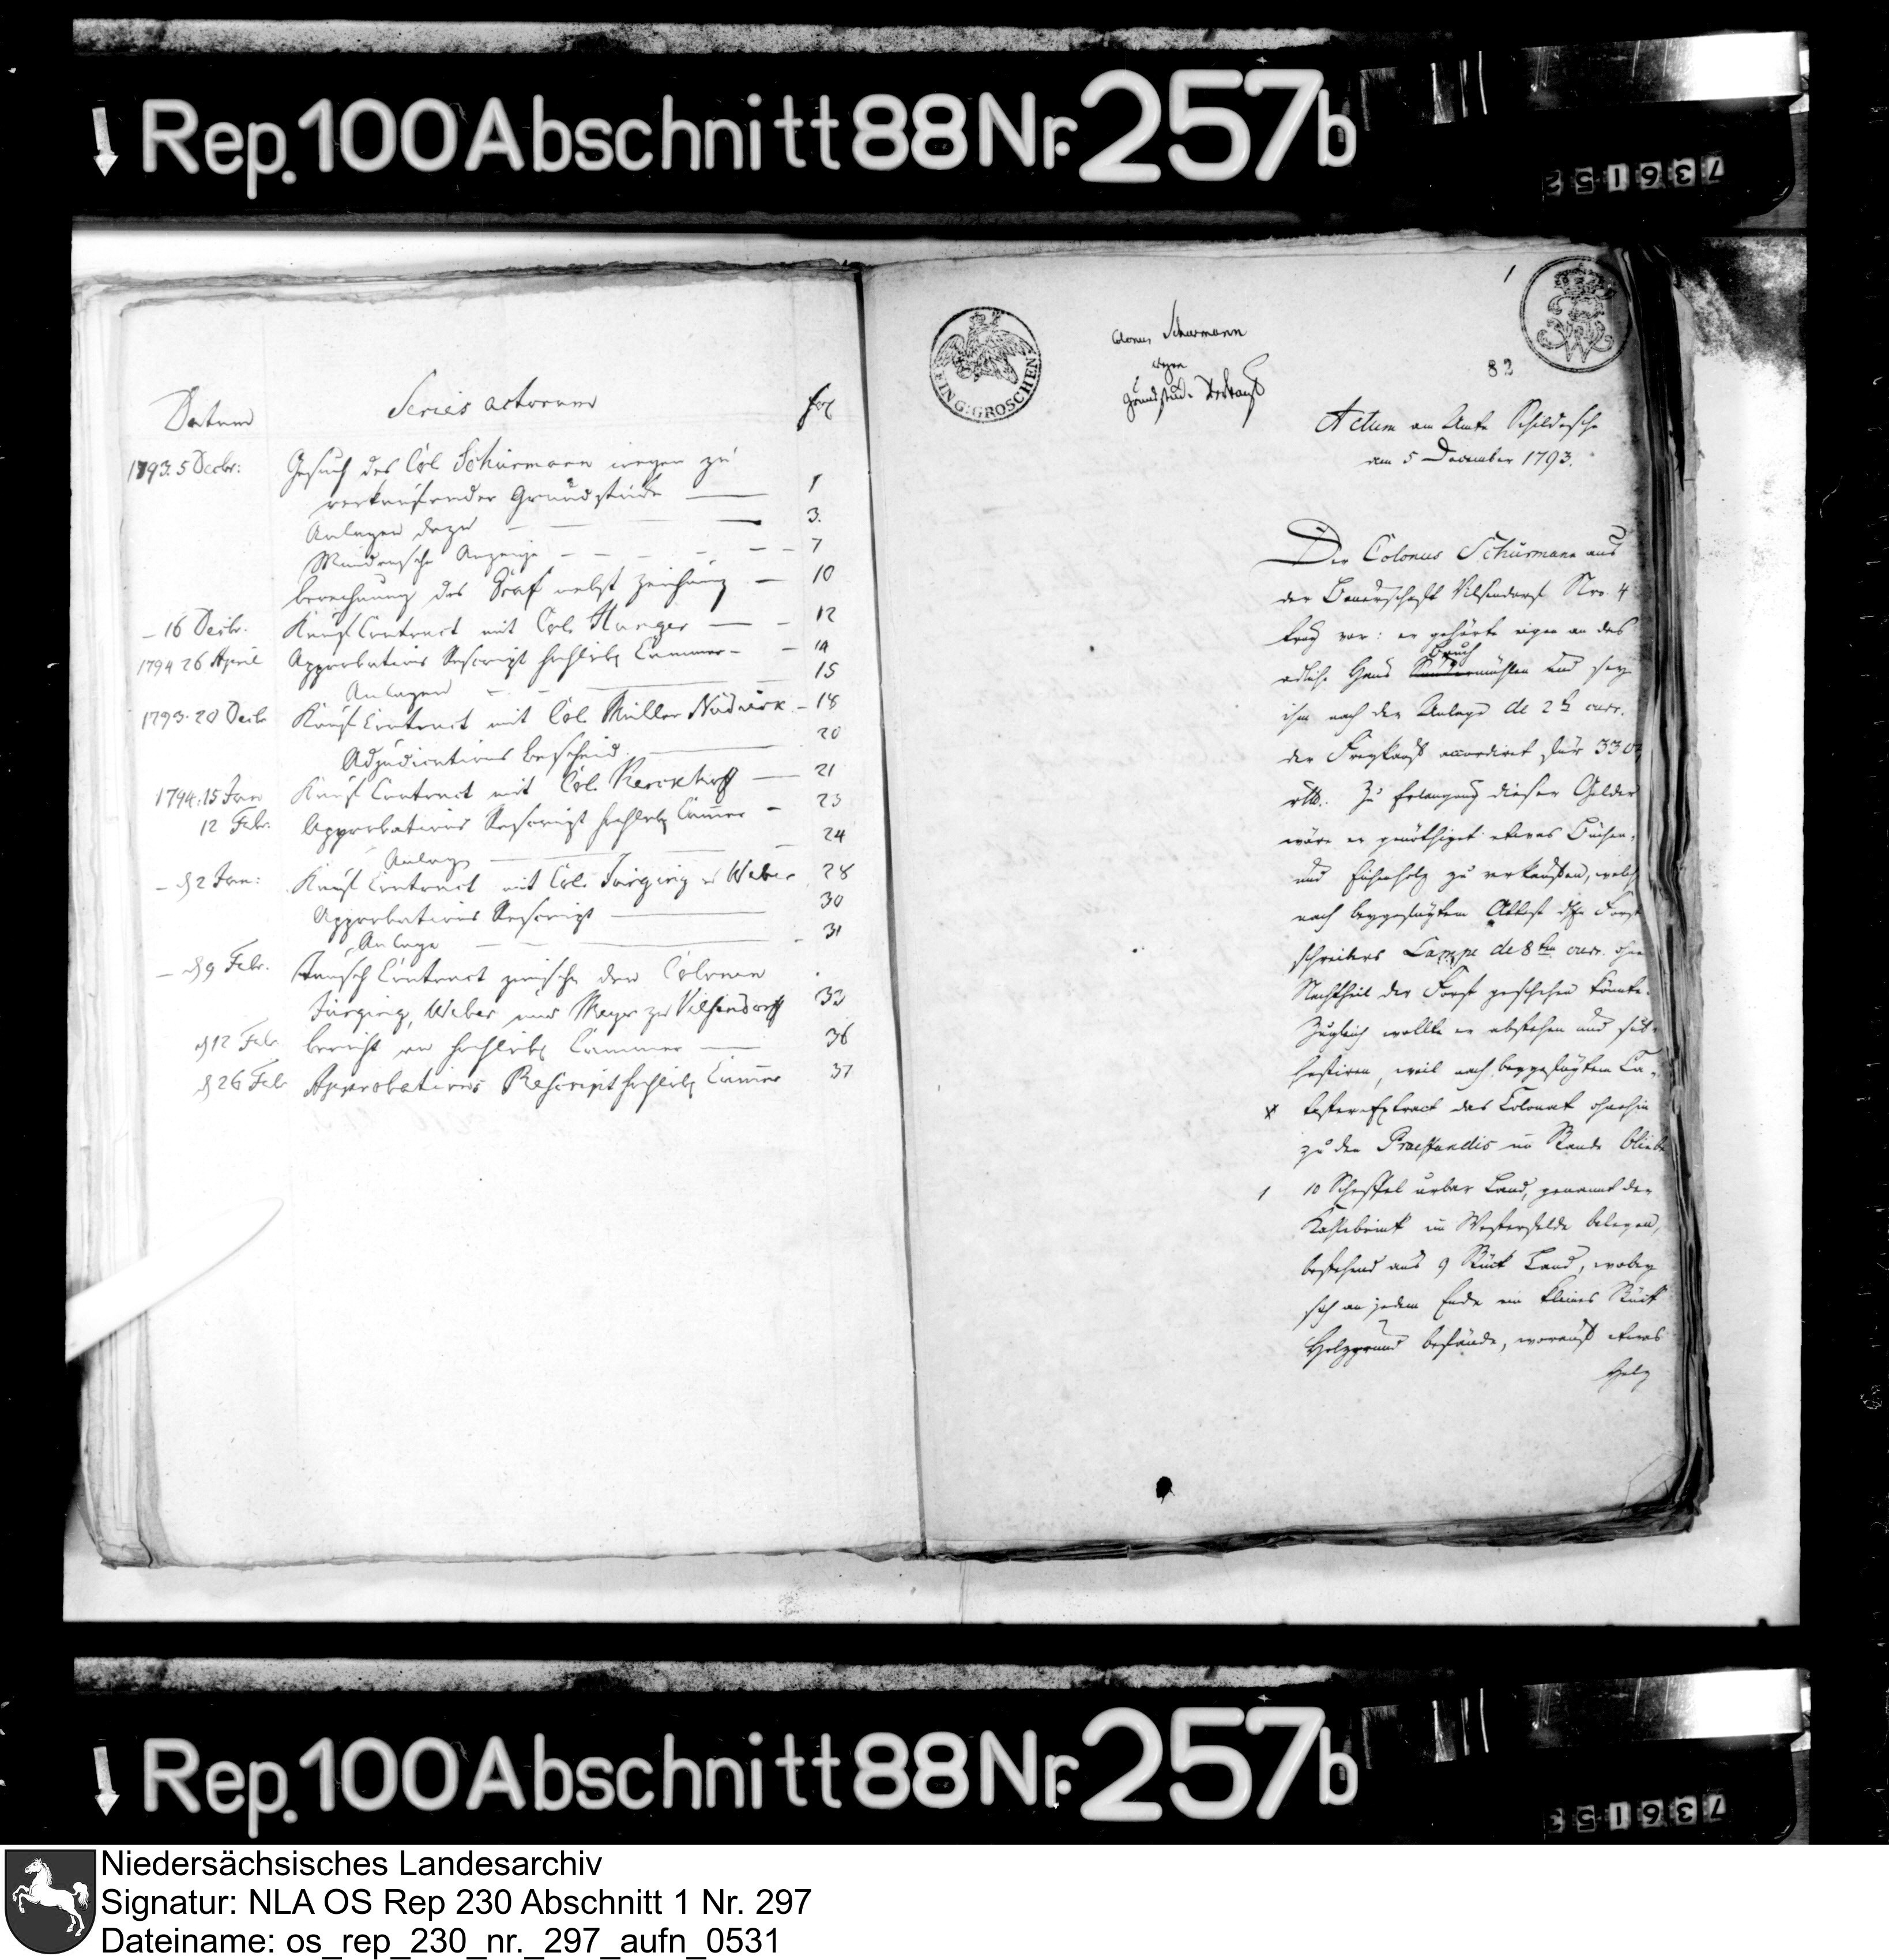 Rep. 100 Abschnitt 88 Nr. 257b
736152
Datum
Series actorum
fol
1793. 5 Decbr:
Gesuch des Col Schürmann wegen zu
verkaufender Grundstücke — 1
Anlagen dazu — 3.
Mindensche Anzeige — 7
Berechnung des nebst Zeichnung — 10
– 16 Decbr. Kauf Contract mit Col. Hunger — 12
1794 26 April Approbations Rescript hochlöbl Cammer — 14
Anlagen — 15
1793. 20 Decbr Kauf Contract mit Col. Müller — 18
Adjudications Bescheid — 20
1794. 15 Jan Kauf Contract mit Col. Kerckhoff — 21
12 Febr. Approbations Rescript hochlöbl Cammer — 23
Anlage — 24
– d 2 Jan: Kauf Contract mit Col. Jürging u Weber 28
Approbations Rescript — 30
Anlage — 31
– d 9 Febr. Tausch Contract zwischen den Colonen
Jürging, Weber und Meyer zu Vilsendorff 32
d 12 Febr Bericht an hochlöbl Cammer — 36
d 26 Febr Approbations Rescript hochlöbl Cammer 37
EIN G: GROSCHEN
Colonus Schürmann
wegen
Grundstück Verkauf
1
82
Actum am Amte Schildesche
am 5 December 1793.
Der Colonus Schürmann aus
der Bauerschaft Vilsendorf Nro. 4
trug vor: er gehörte eigen an das
Bruch
adliche Haus mühlen und sey
ihm nach der Anlage de 2t curr.
der Freykauf accordiret für 330
rtlr. Zu Erlangung dieser Gelder
wäre er genöthiget etwas Büchen-
und Eichenholz zu verkauffen, welch
nach beygefügtem Attest des Forst
schreibers Lampe de 8ten curr. ohne
Nachtheil der Forst geschehen könnte.
Zugleich wollte er abstehen und sub-
hastiren, weil nach beygefügtem Ca-
x taster Extract das Colonat ohnehin
zu den Praestandis im Stande bliebe
1 10 Scheffel urbar Land, genannt der
Kahlebrink im Westerfelde belegen,
bestehend aus 9 Stück Land, wobey
sich an jedem Ende ein kleines Stück
Holzgrund befände, worauf etwas
Holz
Rep. 100 Abschnitt 88 Nr. 257b
736153
Niedersächsisches Landesarchiv
Signatur: NLA OS Rep 230 Abschnitt 1 Nr. 297
Dateiname: os_rep_230_nr._297_aufn_0531